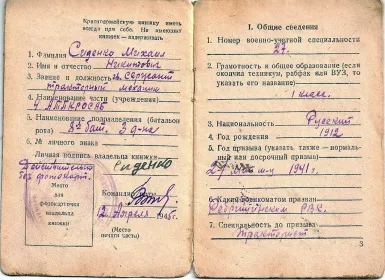 Красноармейскую книжку иметь
всегда при себе. Не имеющих
книжек — задерживать
1. Фамилия Сиденко Михаил
2. Имя и отчество Никитович
3. Звание и должность сержант
тракторный механик
4. Наименование части (учреждения)
5. Наименование подразделения (батальон
рота) 3 д-на
6. № личного знака
Личная подпись владельца книжки
Сиденко
Действительно
без фотокарт.
Место
для
фотокарточки
владельца
книжки
12 апреля 1945 г.
(Место
печати части)
I. Общие сведения
1. Номер военно-учетной специальности
27.
2. Грамотность и общее образование (если
окончил техникум, рабфак или ВУЗ, то
указать его название)
1 класс.
3. Национальность Русский
4. Год рождения 1912
5. Год призыва (указать также — нормаль-
ный или досрочный призыв)
1941 г.
6. Каким военкоматом призван
РВК.
7. Специальность до призыва
тракторист
3